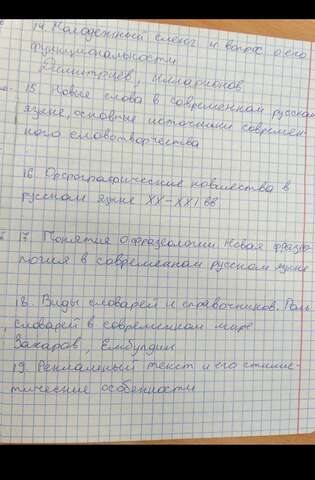 14. Молодежный сленг и вопрос о его
функциональности
Дмитриев, Илларионов
15. Новые слова в современном русском
языке, основные источники современ-
ного словотворчества
16. Орфографические новшества в
русском языке XX-XXI вв
17. Понятия о фразеологии. Новая фразео
логия в современном русском языке
18. Виды словарей и справочников. Роль
словарей в современном мире
Захаров, Ембулдин
19. Рекламный текст и его стилис-
тические особенности